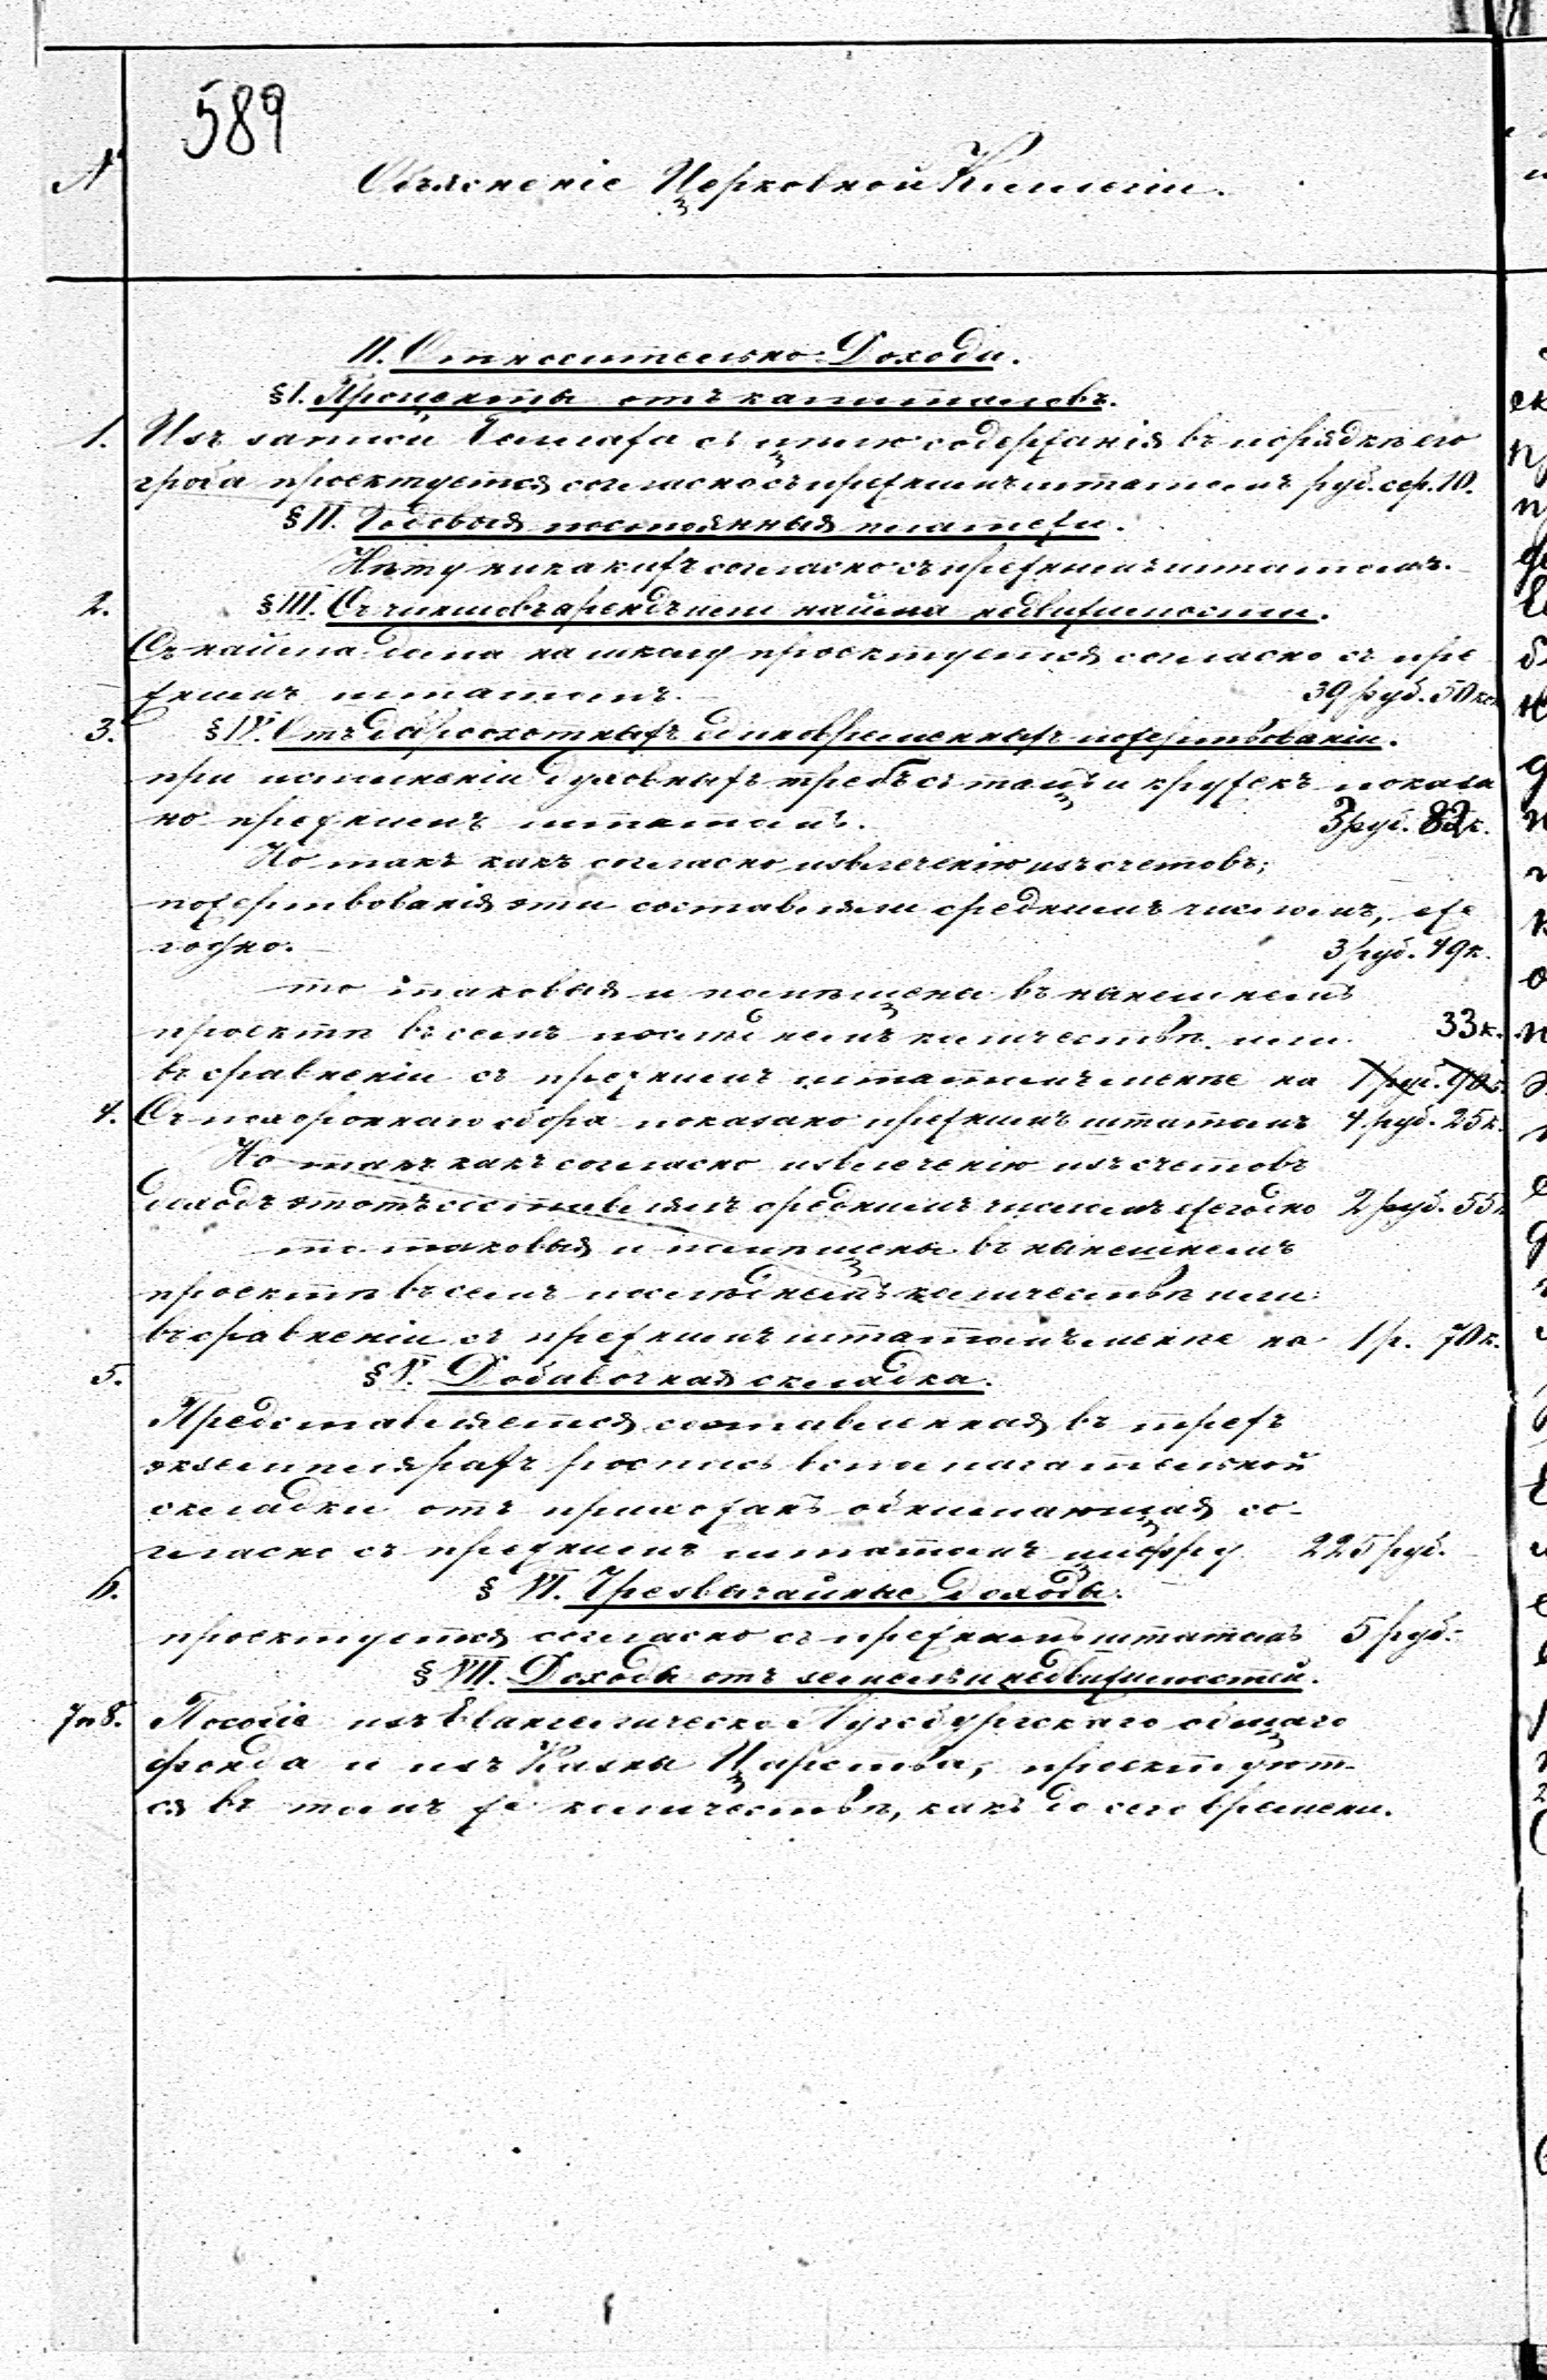 589
№
Объясненіе Церковной Коллегіи.
II. Относительно Дохода.
§ I. Проценты отъ капиталовъ.
1. Изъ записи с цѣлю содержанія въ порядкѣ его
гроба проектуется согласно съ прежнимъ штатомъ руб. сер. 10.
§ II. Годовыя постоянныя платежи.
Нѣту никакихъ согласно съ прежнимъ штатомъ.
2. § III. Съ чиншовъ арендъ или найма недвижимости.
Съ найма дома на школу проектуется согласно съ пре
жнимъ штатомъ. 39 руб. 50 коп
3. § IV. Отъ доброохотныхъ единовременныхъ пожертвованіи.
при исполненіи духовныхъ требъ съ тацъ и кружекъ показа
но прежнимъ штатомъ. 3 руб. 82 к.
Но такъ какъ согласно извлеченію изъ счетовъ;
пожертвованія эти составляли среднимъ числомъ, еже
годно. 3 руб. 49 к.
то таковыя и помѣщены въ нынешнемъ
проектѣ въ семъ послѣднемъ количествѣ или 33 к.
въ сравненіи съ прежнимъ штатомъ менѣе на 1 руб. 90 к.
4. Съ похороннаго сбора показано прежнимъ штатомъ 4 руб. 25 к.
Но такъ какъ согласно извлеченію изъ счетовъ
доходъ этотъ составлялъ среднимъ числомъ ежегодно 2 руб. 55 к
то таковыя и помѣщены въ нынешнемъ
проектѣ въ семъ послѣднемъ количествѣ или
въ сравненіи съ прежнимъ штатомъ менѣе на 1 р. 70 к.
5. § V. Добавочная складка.
Представляется составленная въ трехъ
экземплярахъ роспись вспомагательной
складки отъ прихожанъ обнимающая со-
гласно съ прежнимъ штатомъ цыфру 225 руб.
6. § VI. Чрезвычайные Доходы.
проектуется согласно съ прежнимъ штатомъ 5 руб.
§ VII. Доходы отъ земель и недвижимостей.
7 и 8. Пособіе изъ Евангелическо Аугсбургскаго общаго
фонда и изъ Казны Царства, проектуют-
ся въ томъ же количествѣ, какъ до сего времени.